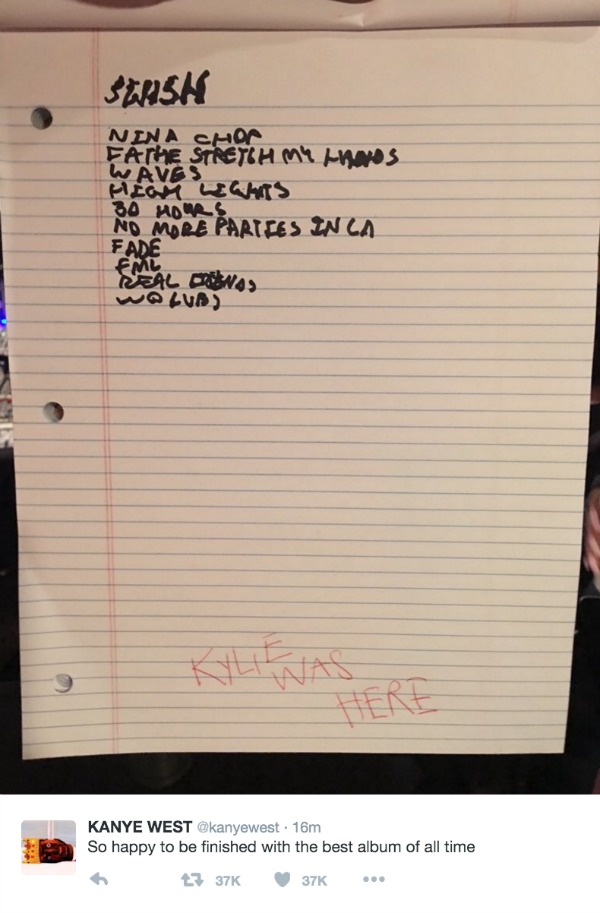 NINA CHOP
FATHE STRETCH MY HANDS
WAVES
HIGH LIGHTS
30 HOURS
NO MORE PARTIES IN LA
FADE
FML
REAL
KYLIE WAS HERE
KANYE WEST @kanyewest · 16m
So happy to be finished with the best album of all time
37K 37K